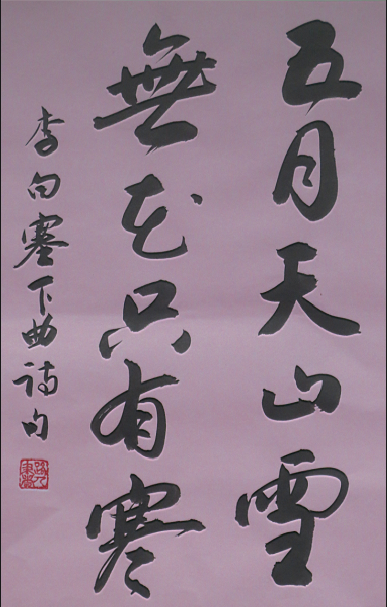 五月天山雪
無花只有寒
李白塞下曲诗句